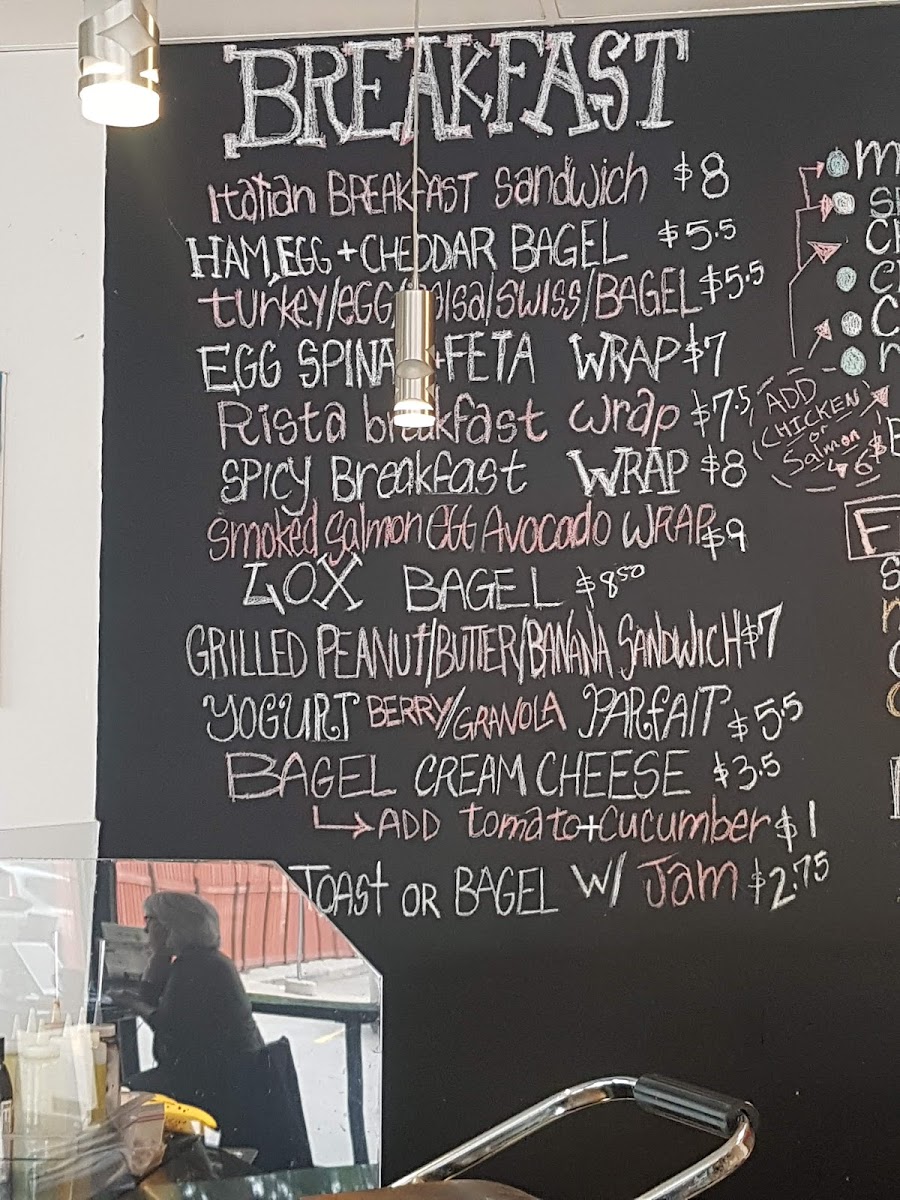 BREAKFAST
Italian BREAKFAST Sandwich $8
HAM, EGG + CHEDDAR BAGEL $5.5
turkey/EGG/salsa/swiss/BAGEL $5.5
EGG SPINA +FETA WRAP $7
Rista breakfast wrap $7.5
SPICY Breakfast WRAP $8
Smoked Salmon EGG Avocado WRAP $9
LOX BAGEL $8.50
GRILLED PEANUT/BUTTER/BANANA SANDWICH $7
YOGURT BERRY/GRANOLA PARFAIT $5.5
BAGEL CREAM CHEESE $3.5
ADD tomato+cucumber $1
TOAST OR BAGEL W/ Jam $2.75
ADD
CHICKEN
or
Salmon
4 6$